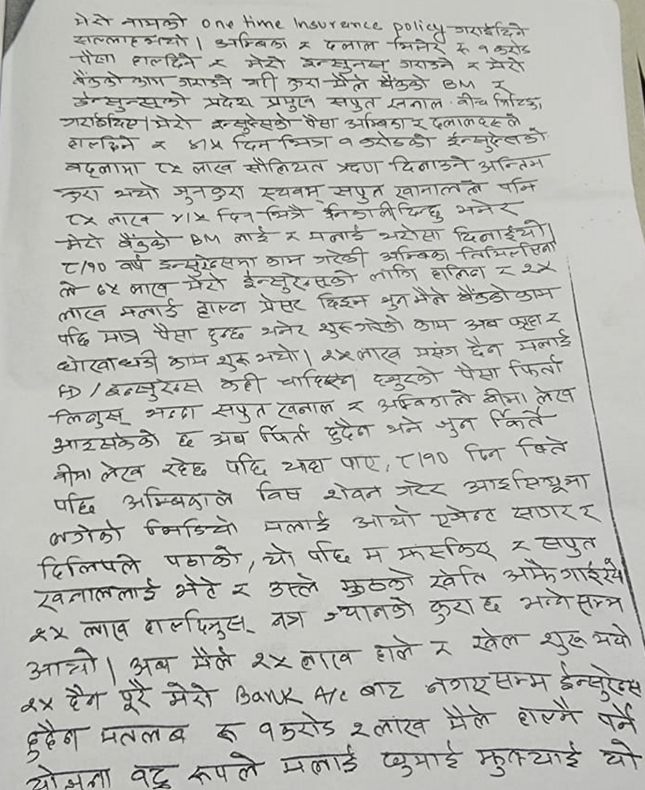 मेरो नामको one time Insurance policy गराईदिने
सल्लाह भयो । अम्बिका र दलाल मिलेर रू १ करोड
पैसा हालदिने र मेरो ईन्सुरेन्स गराउने र मेरो
बैंकको काम गराउने गरी कुरा मैले बैंकको BM र
ईन्सुरेन्सको प्रदेश प्रमुख सपुत खनाल बीच मिटिङ्ग
गराईदिए । मेरो ईन्सुरेन्सको पैसा अम्बिका र दलालहरूले
हालदिने र ४।५ दिन भित्र १ करोडको ईन्सुरेन्सको
बदलामा ८५ लाख सौलियत ऋण दिलाउने अन्तिम
कुरा भयो जुनकुरा स्वयम् सपुत खनालले पनि
८५ लाख ४।५ दिन भित्रै निकालीदिन्छु भनेर
मेरो बैंकको BM लाई र मलाई भरोसा दिलाईयो ।
८/१० वर्ष ईन्सुरेन्समा काम गरेकी अम्बिका तिमिल्सिना
ले ७५ लाख मेरो ईन्सुरेन्सको लागि हालिन र २५
लाख मलाई हाल्न प्रेसर दिइन जुन मैले बैंकको काम
पछि मात्र पैसा हुन्छ भनेर शुरु गरेको काम अब झुठा र
धोखाधडी काम शुरू भयो । २५ लाख मसंग छैन मलाई
FD / ईन्सुरेन्स केही चाहिएन हजुरको पैसा फिर्ता
लिनुस् भन्दा सपुत खनाल र अम्बिकाले बीमा लेख
आइसकेको छ अब फिर्ता हुदैन भने जुन किर्ते
बीमा लेख रहेछ पछि थाहा पाए, ८/१० दिन बिते
पछि अम्बिकाले विष शेवन गरेर आइसियूमा
लगेको भिडियो मलाई आयो एजेन्ट सागर र
दिलिपले पठाको, यो पछि म झस्किए र सपुत
खनाललाई भेटे र उस्ले झुठको खेति आफै गाईरह्यो
२५ लाख हालदिनुस् नत्र ज्यानको कुरा छ भन्ने सम्म
आयो । अब मैले २५ लाख हाले र खेल शुरू भयो
२५ हैन पूरै मेरो Bank A/c बाट नगए सम्म ईन्सुरेन्स
हुदैन मतलब रू १ करोड २ लाख मैले हाल्नै पर्ने
योजना वद्द रूपले मलाई घुमाई झुक्याई यो